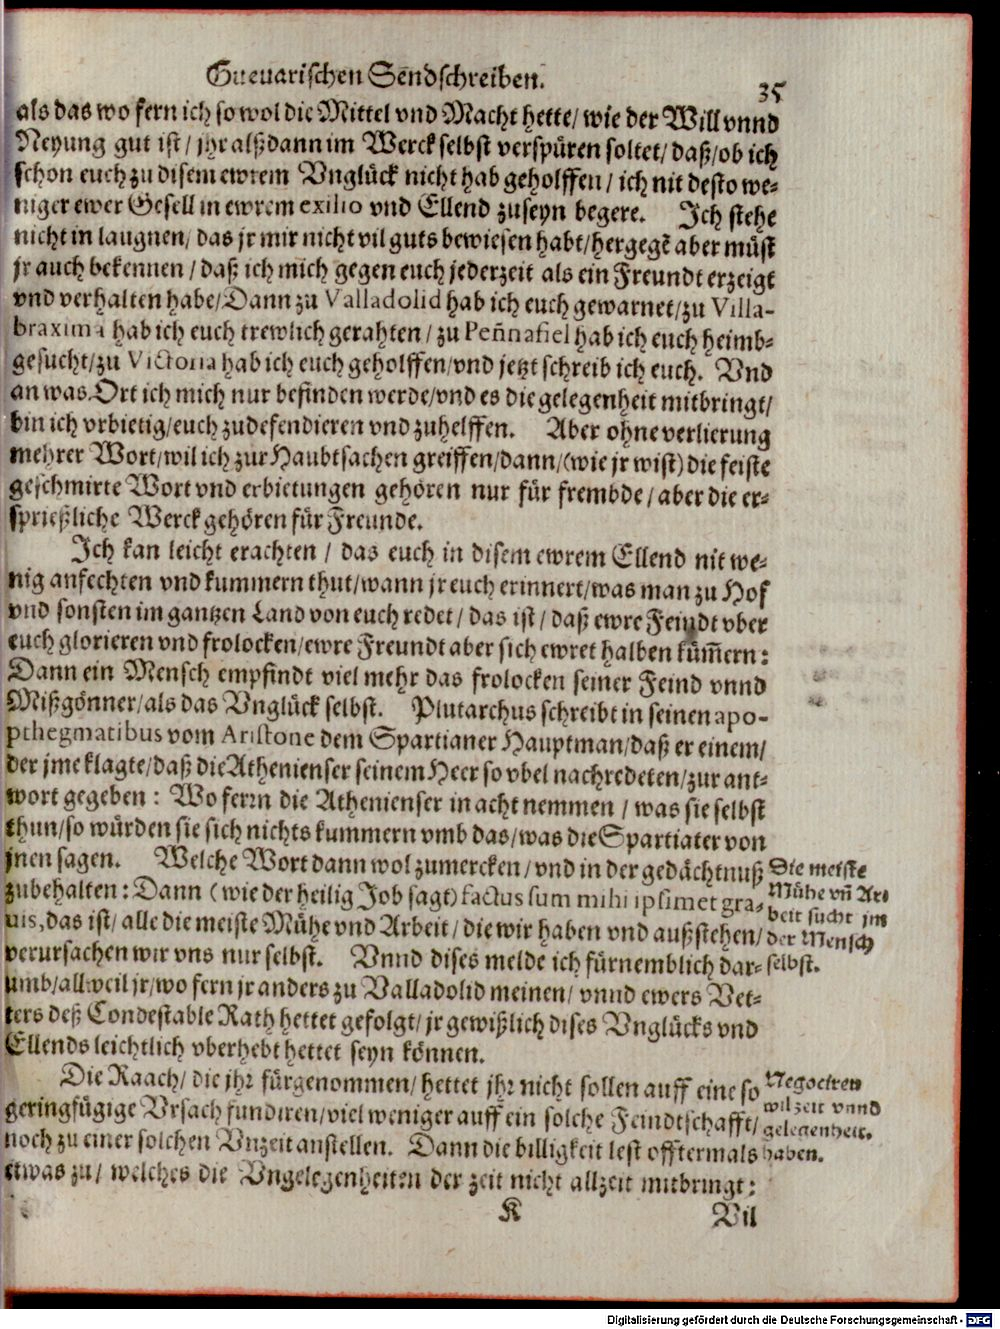 Guevarischen Sendschreiben.
35
als das wo fern ich so wol die Mittel vnd Macht hette/ wie der Will vnnd
Neyung gut ist/ jhr alßdann im Werck selbst verspüren soltet/ daß/ ob ich
schon euch zu disem ewrem Vnglück nicht hab geholffen/ ich nit desto we-
niger ewer Gesell in ewrem exilio vnd Ellend zuseyn begere. Ich stehe
nicht in laugnen/ das jr mir nicht vil guts bewiesen habt/ hergegē aber müst
jr auch bekennen/ daß ich mich gegen euch jederzeit als ein Freundt erzeigt
vnd verhalten habe/ Dann zu Valladolid hab ich euch gewarnet/ zu Villa-
braxima hab ich euch trewlich gerahten/ zu Peñnafiel hab ich euch heimb-
gesucht/ zu Victoria hab ich euch geholffen/ vnd jetzt schreib ich euch. Vnd
an was Ort ich mich nur befinden werde/ vnd es die gelegenheit mitbringt/
bin ich vrbietig/ euch zu defendieren vnd zuhelffen. Aber ohne verlierung
mehrer Wort/ wil ich zur Haubtsachen greiffen/ dann/ (wie jr wist) die feiste
geschmirte Wort vnd erbietungen gehören nur für frembde/ aber die er-
sprießliche Werck gehören für Freunde.
Ich kan leicht erachten/ das euch in disem ewrem Ellend nit we-
nig anfechten vnd kummern thut/ wann jr euch erinnert/ was man zu Hof
vnd sonsten im gantzen Land von euch redet/ das ist/ daß ewre Feindt vber
euch glorieren vnd frolocken/ ewre Freundt aber sich ewret halben küm̄ern:
Dann ein Mensch empfindt viel mehr das frolocken seiner Feind vnnd
Mißgönner/ als das Vnglück selbst. Plutarchus schreibt in seinen apo-
pthegmatibus vom Aristone dem Spartianer Hauptman/ daß er einem/
der jme klagte/ daß die Athenienser seinem Heer so vbel nachredeten/ zur ant-
wort gegeben: Wo fern die Athenienser in acht nemmen/ was sie selbst
thun/ so würden sie sich nichts kummern vmb das/ was die Spartiater von
jnen sagen. Welche Wort dann wol zumercken/ vnd in der gedächtnuß
zubehalten: Dann (wie der heilig Job sagt) factus sum mihi ipsimet gra-
uis, das ist/ alle die meiste Mühe vnd Arbeit/ die wir haben vnd außstehen/
verursachen wir vns nur selbst. Vnnd dises melde ich fürnemblich dar-
umb/ allweil jr/ wo fern jr anders zu Valladolid meinen/ vnnd ewers Vet-
ters deß Condestable Rath hettet gefolgt/ jr gewißlich dises Vnglücks vnd
Ellends leichtlich vberhebt hettet seyn können.
Die meiste
Mühe vñ Ar-
beit sucht jm
der Mensch
selbst.
Die Raach/ die jhr fürgenommen/ hettet jhr nicht sollen auff eine so
geringfügige Vrsach fundiren/ viel weniger auff ein solche Feindtschafft/
noch zu einer solchen Vnzeit anstellen. Dann die billigkeit lest offtermals
etwas zu/ welches die Vngelegenheiten der zeit nicht allzeit mitbringt:
Negocirẽ
wil zeit vnnd
gelegenheit
haben.
K
Vil
Digitalisierung gefördert durch die Deutsche Forschungsgemeinschaft - DFG